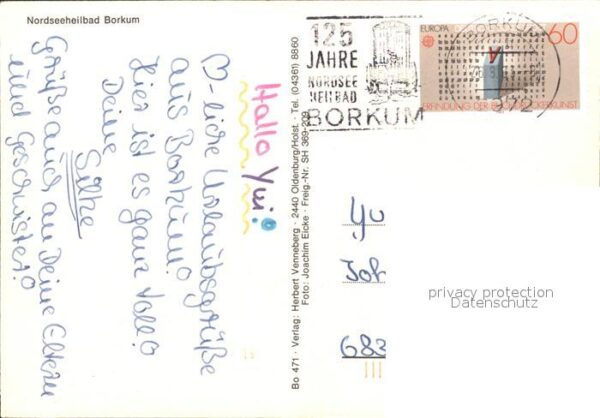 Nordseeheilbad Borkum
Hallo Yvi!
♡-liche Urlaubsgrüße
aus Borkum!
Hier ist es ganz toll!
Deine
Silke
Grüße auch an Deine Eltern
und Geschwister!
Bo 471 · Verlag: Herbert Venneberg · 2440 Oldenburg/Holst. · Tel. (04361) 8860
Foto: Joachim Eicke · Freig.-Nr. SH 369-209
125
JAHRE
NORDSEE
HEILBAD
BORKUM
BORKUM
EUROPA
60
ERFINDUNG DER BUCHDRUCKERKUNST
Joh
683
privacy protection
Datenschutz